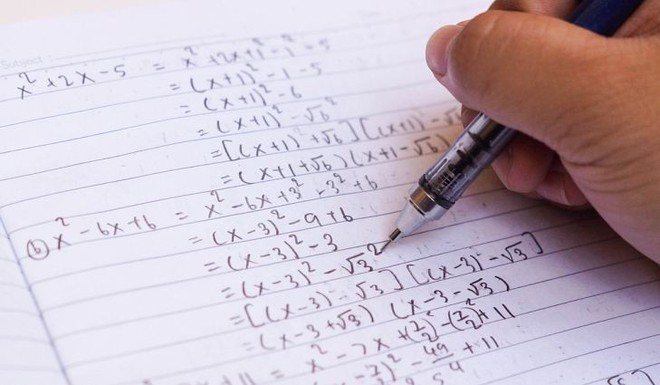 Subject
x² + 2x - 5 = x² + 2x + 1² - 1² - 5
= (x+1)² - 1 - 5
= (x+1)² - 6
= (x+1)² - √6²
= [(x+1) + √6] [(x+1) - √6
= (x+1+√6)(x+1-√6)
(b) x² - 6x + 6 = x² - 6x + 3² - 3² + 6
= (x-3)² - 9 + 6
= (x-3)² - 3
= (x-3)² - √3²
= [(x-3) - √3] [(x-3) - √3]
= (x-3+√3) (x-3-√3)
= x² - 7x + (7/2)² - (7/2)² + 11
)² - 49/4 + 11